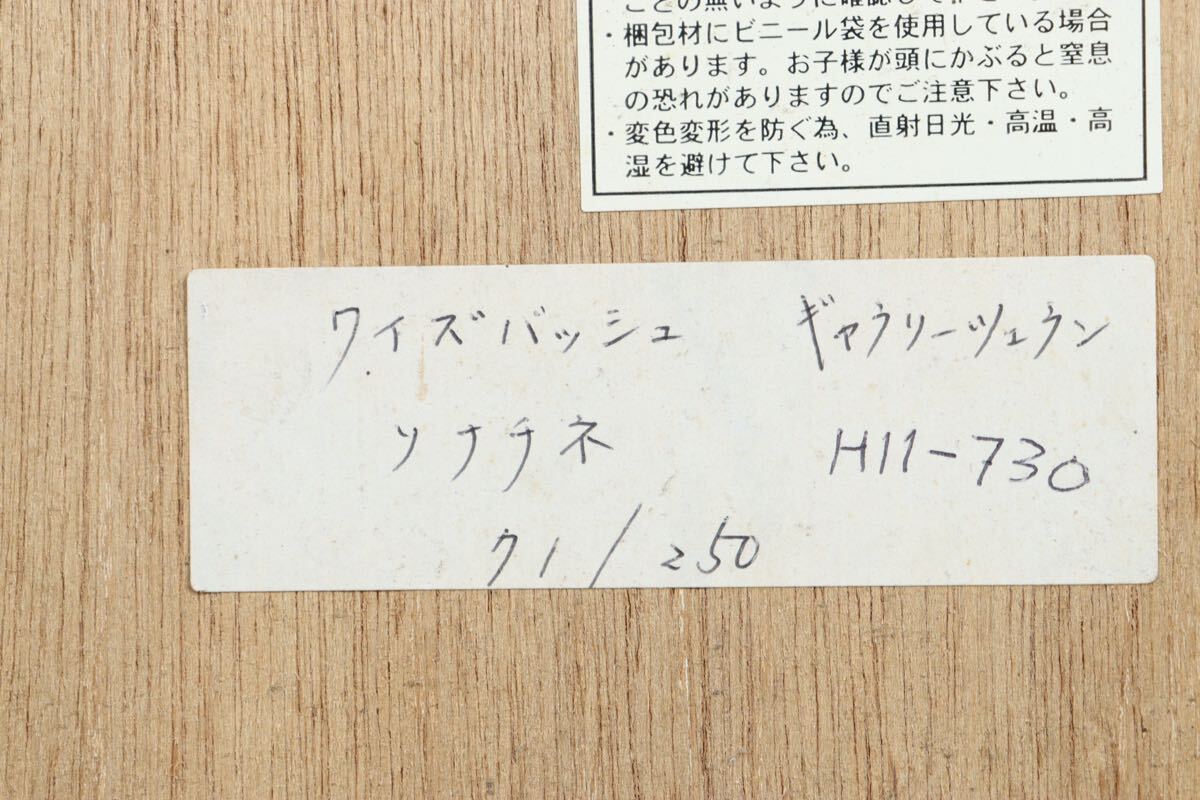 ・梱包材にビニール袋を使用している場合
があります。お子様が頭にかぶると窒息
の恐れがありますのでご注意下さい。
・変色変形を防ぐ為、直射日光・高温・高
湿を避けて下さい。
ワイズバッシュ ギャラリーツェウン
ソナチネ H11-730
71/250